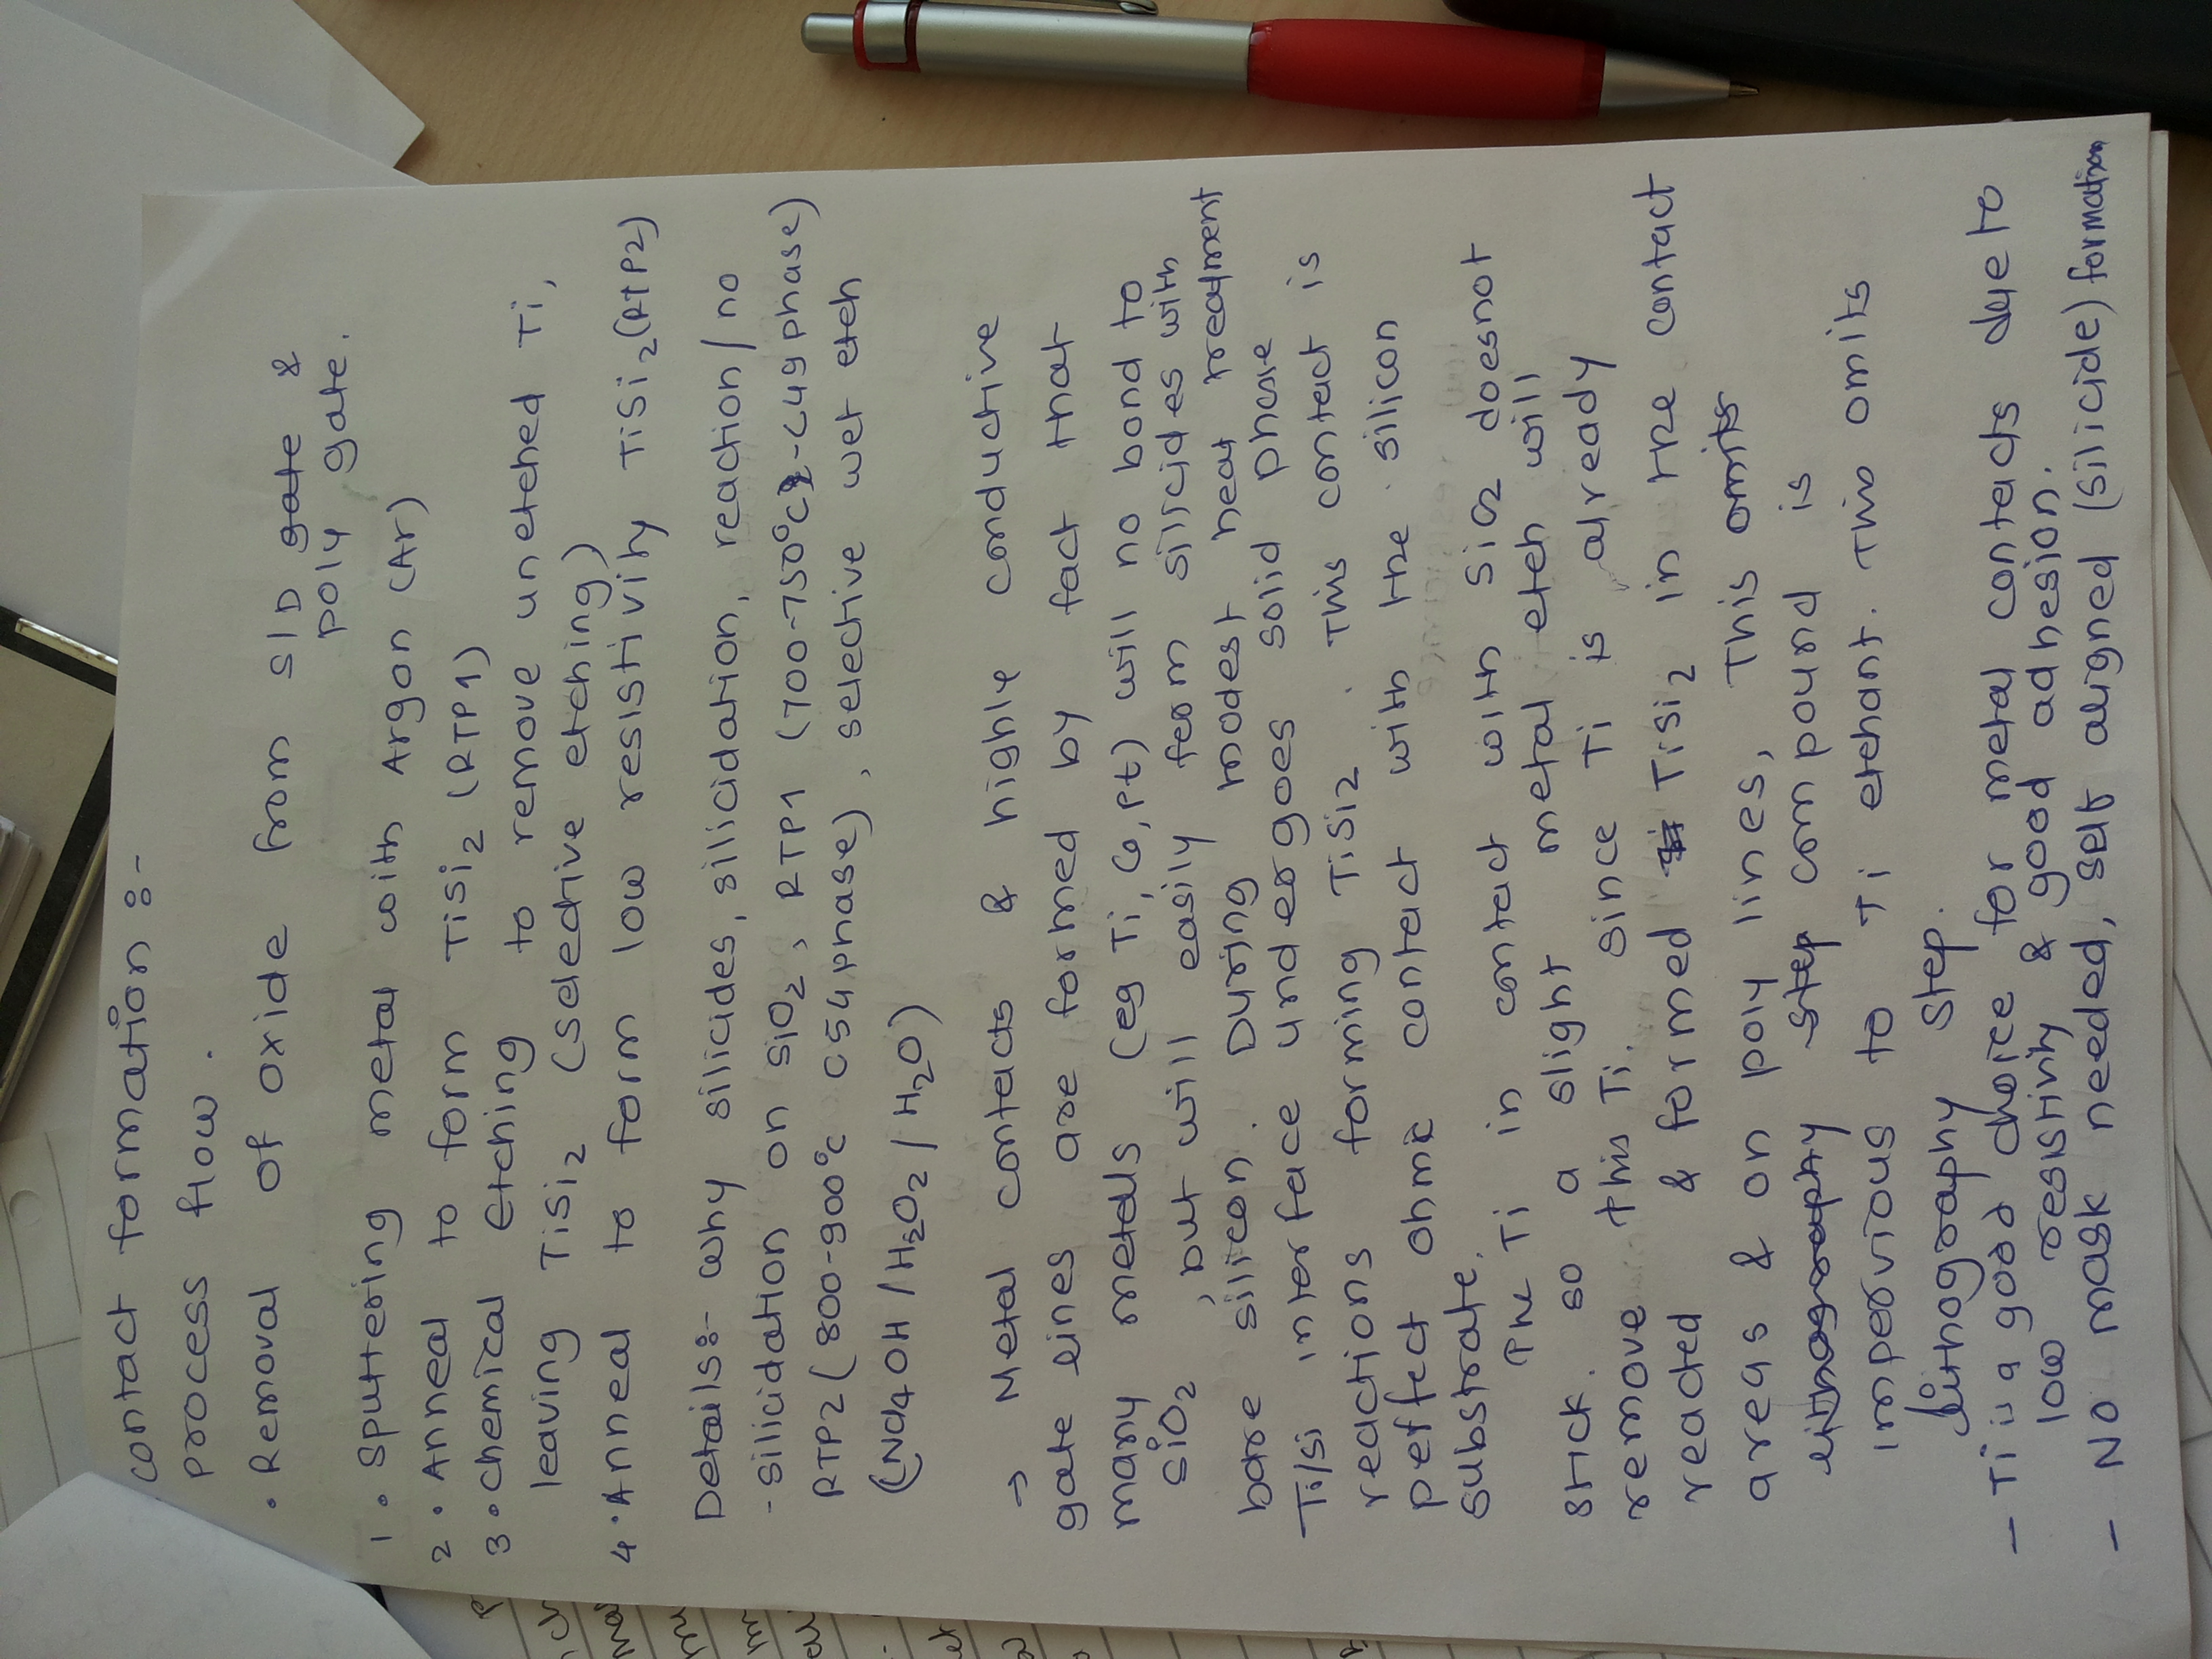 contact formation :-
process flow .
• Removal of oxide from S/D gate &
poly gate.
1 • Sputtering metal with Argon (Ar)
2 • Anneal to form TiSi2 (RTP1)
3 • chemical Etching to remove unetched Ti,
leaving TiSi2 (selective etching)
4 • Anneal to form low resistivity TiSi2 (RTP2)
Details:- Why silicides, silicidation, reaction/no
- silicidation on SiO2, RTP1 (700-750°C - C49 phase)
RTP2 (800-900°C C54 phase), selective wet etch
(NH4OH / H2O2 / H2O)
→ Metal contacts & highly conductive
gate lines are formed by fact that
many metals (eg Ti, Co, Pt) will no bond to
SiO2, but will easily form silicides with
bare silicon. During modest heat treatment
Ti/Si interface undergoes solid phase
reactions forming TiSi2. This contact is
perfect ohmic contact with the silicon
substrate.
The Ti in contact with SiO2 doesnot
stick. so a slight metal etch will
remove this Ti. since Ti is already
reacted & formed Si TiSi2 in the contact
areas & on poly lines, This omits
lithography step compound is
impervious to Ti etchant. This omits
lithography step.
- Ti is a good choice for metal contacts due to
low resistivity & good adhesion.
- No mask needed, self aligned (silicide) formation